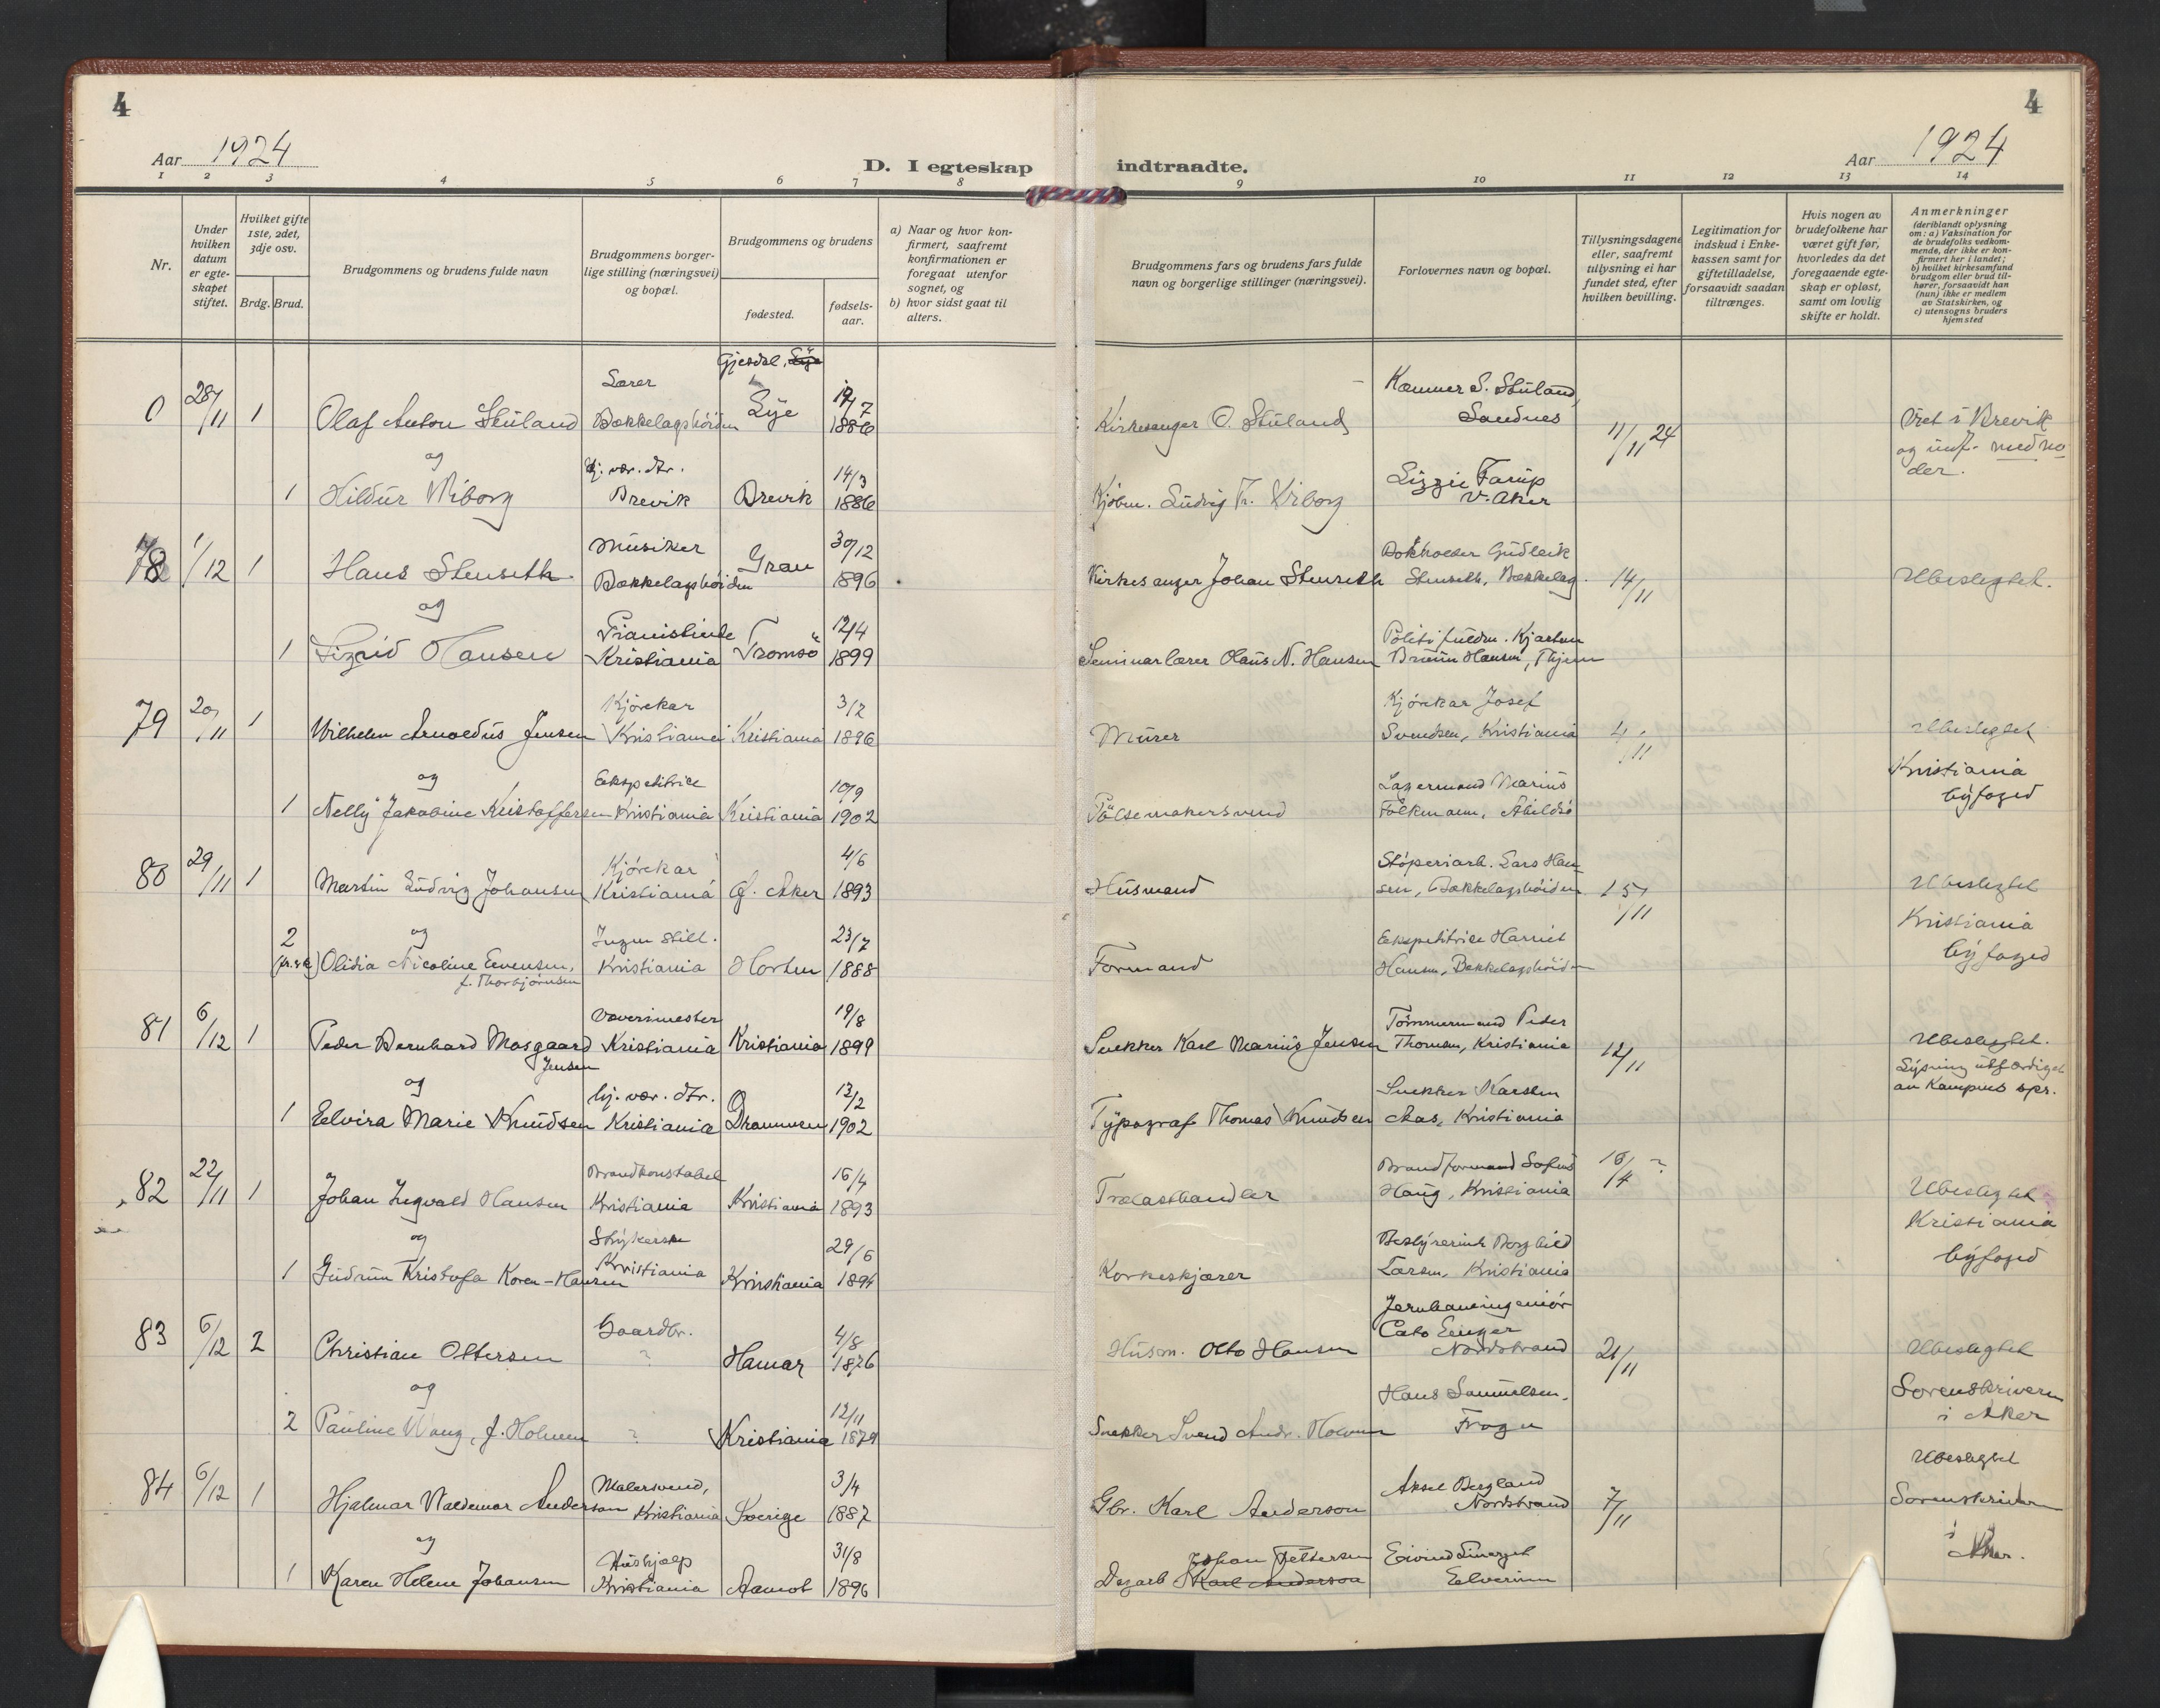 4
4
Aar 1924
D. I egteskap
indtraadte.
Aar 1924
1 2 3 4 5 6 7 8 9 10 11 12 13 14
Nr.
Under hvilken datum er egte-skapet stiftet.
Hvilket gifte 1ste, 2det, 3dje osv.
Brdg. Brud.
Brudgommens og brudens fulde navn
Brudgommens borger-lige stilling (næringsvei) og bopæl.
Brudgommens og brudens
fødested.
fødsels-aar.
a) Naar og hvor kon-firmert, saafremt konfirmationen er foregaat utenfor sognet, og
b) hvor sidst gaat til alters.
Brudgommens fars og brudens fars fulde navn og borgerlige stillinger (næringsvei).
Forlovernes navn og bopæl.
Tillysningsdagene eller, saafremt tillysning ei har fundet sted, efter hvilken bevilling.
Legitimation for indskud i Enke-kassen samt for giftetilladelse, forsaavidt saadan tiltrænges.
Hvis nogen av brudefolkene har været gift før, hvorledes da det foregaaende egte-skap er opløst, samt om lovlig skifte er holdt.
Anmerkninger (deriblandt oplysning om: a) Vaksination for de brudefolks vedkom-mende, der ikke er kon-firmert her i landet; b) hvilket kirkesamfund brudgom eller brud til-hører, forsaavidt han (hun) ikke er medlem av Statskirken, og c) utensogns bruders hjemsted
Gjesdal, Lye
0 28/11 1 Olaf Anton Stuland Lærer Bækkelagshöiden Lye 19/7 1886 Kirkesanger O. Stuland Kæmner S. Stuland, Sandnes 11/11 24 Viet i Brevik
og
1 Hildur Wiborg hj. vær. dtr. Brevik Brevik 14/3 1886 Kjöbm. Ludvig Fr. Wiborg Lizzie Farup V. Aker
78 1/12 1 Hans Stenseth Musiker Bækkelagshöiden Gran 30/12 1896 Kirkesanger Johan Stenseth Bokholder Gudleik Stenseth, Bækkelag. 14/11 Ubeslegtet.
og
1 Sigrid Hansen Pianistinde Kristiania Tromsö 12/4 1899 Seminarlærer Olaus N. Hansen Politifuldm. Kjartan Bruun Hansen,
79 20/11 1 Wilhelm Arnoldus Jensen Kjörekar Kristiania Kristiania 3/2 1896 Murer Kjörekar Josef Svendsen, Kristiania 4/11 Ubeslegtet
og
1 Nelly Jakobine Kristoffersen Ekspeditrice Kristiania Kristiania 10/9 1902 Pölsemakersvend Lagermand Marius Folkmann, Abildsö Kristiania byfoged
80 29/11 1 Martin Ludvig Johansen Kjörekar Kristiania Ö. Aker 4/6 1893 Husmand Stöperiarb. Lars Hansen, Bækkelagshöiden 15/11 Ubeslegtet
og
2 Olidia Nicoline Evensen, f. Thorbjörnsen Ingen still. Kristiania Horten 23/7 1888 Formand Ekspeditrice Harriet Hansen, Bekkelagshöiden Kristiania byfoged
81 6/12 1 Peder Bernhard Mosgaard Jensen Væverimester Kristiania Kristiania 19/8 1899 Snekker Karl Marius Jensen Tömmermand Peder Thomsen, Kristiania 12/11 Ubeslegtet.
og
1 Elvira Marie Knudsen hj. vær. dtr. Kristiania Drammen 13/2 1902 Typograf Thomas Knudsen Snekker Karsten Aas, Kristiania Lysning utfærdiget av Kampens spr.
82 22/11 1 Johan Ingvald Hansen Brandkonstabel Kristiania Kristiania 16/4 1893 Trælasthandler Brandformand Sofus Haug, Kristiania 16/4 ? Ubeslegtet
og
1 Gudrun Kristofa Koren-Hansen Strykerske Kristiania Kristiania 29/6 1894 Korkeskjærer Bestyrerinde Borghild Larsen, Kristiania Kristiania byfoged
83 6/12 2 Christian Ottersen Gaardbr. ? Hamar 4/8 1876 Husm. Otto Hansen Jernbaneingeniör Cato Enger Nordstrand 21/11 Ubeslegtet
og
2 Pauline Wang, f. Holmen ? Kristiania 12/11 1879 Snekker Svend Andr. Holmen Hans Samuelsen, Frogn Sorenskriveren i Aker
84 6/12 1 Hjalmar Waldemar Anderson Malersvend, Kristiania Sverige 3/4 1887 Gbr. Karl Anderson Aksel Bergland Nordstrand 7/11 Ubeslegtet
og
1 Karen Helene Johansen Hushjælp Kristiania Aamot 31/8 1896 Dagarb. Johan Pettersen Karl Anderson Eivind Elverum Sorenskriver i Aker.